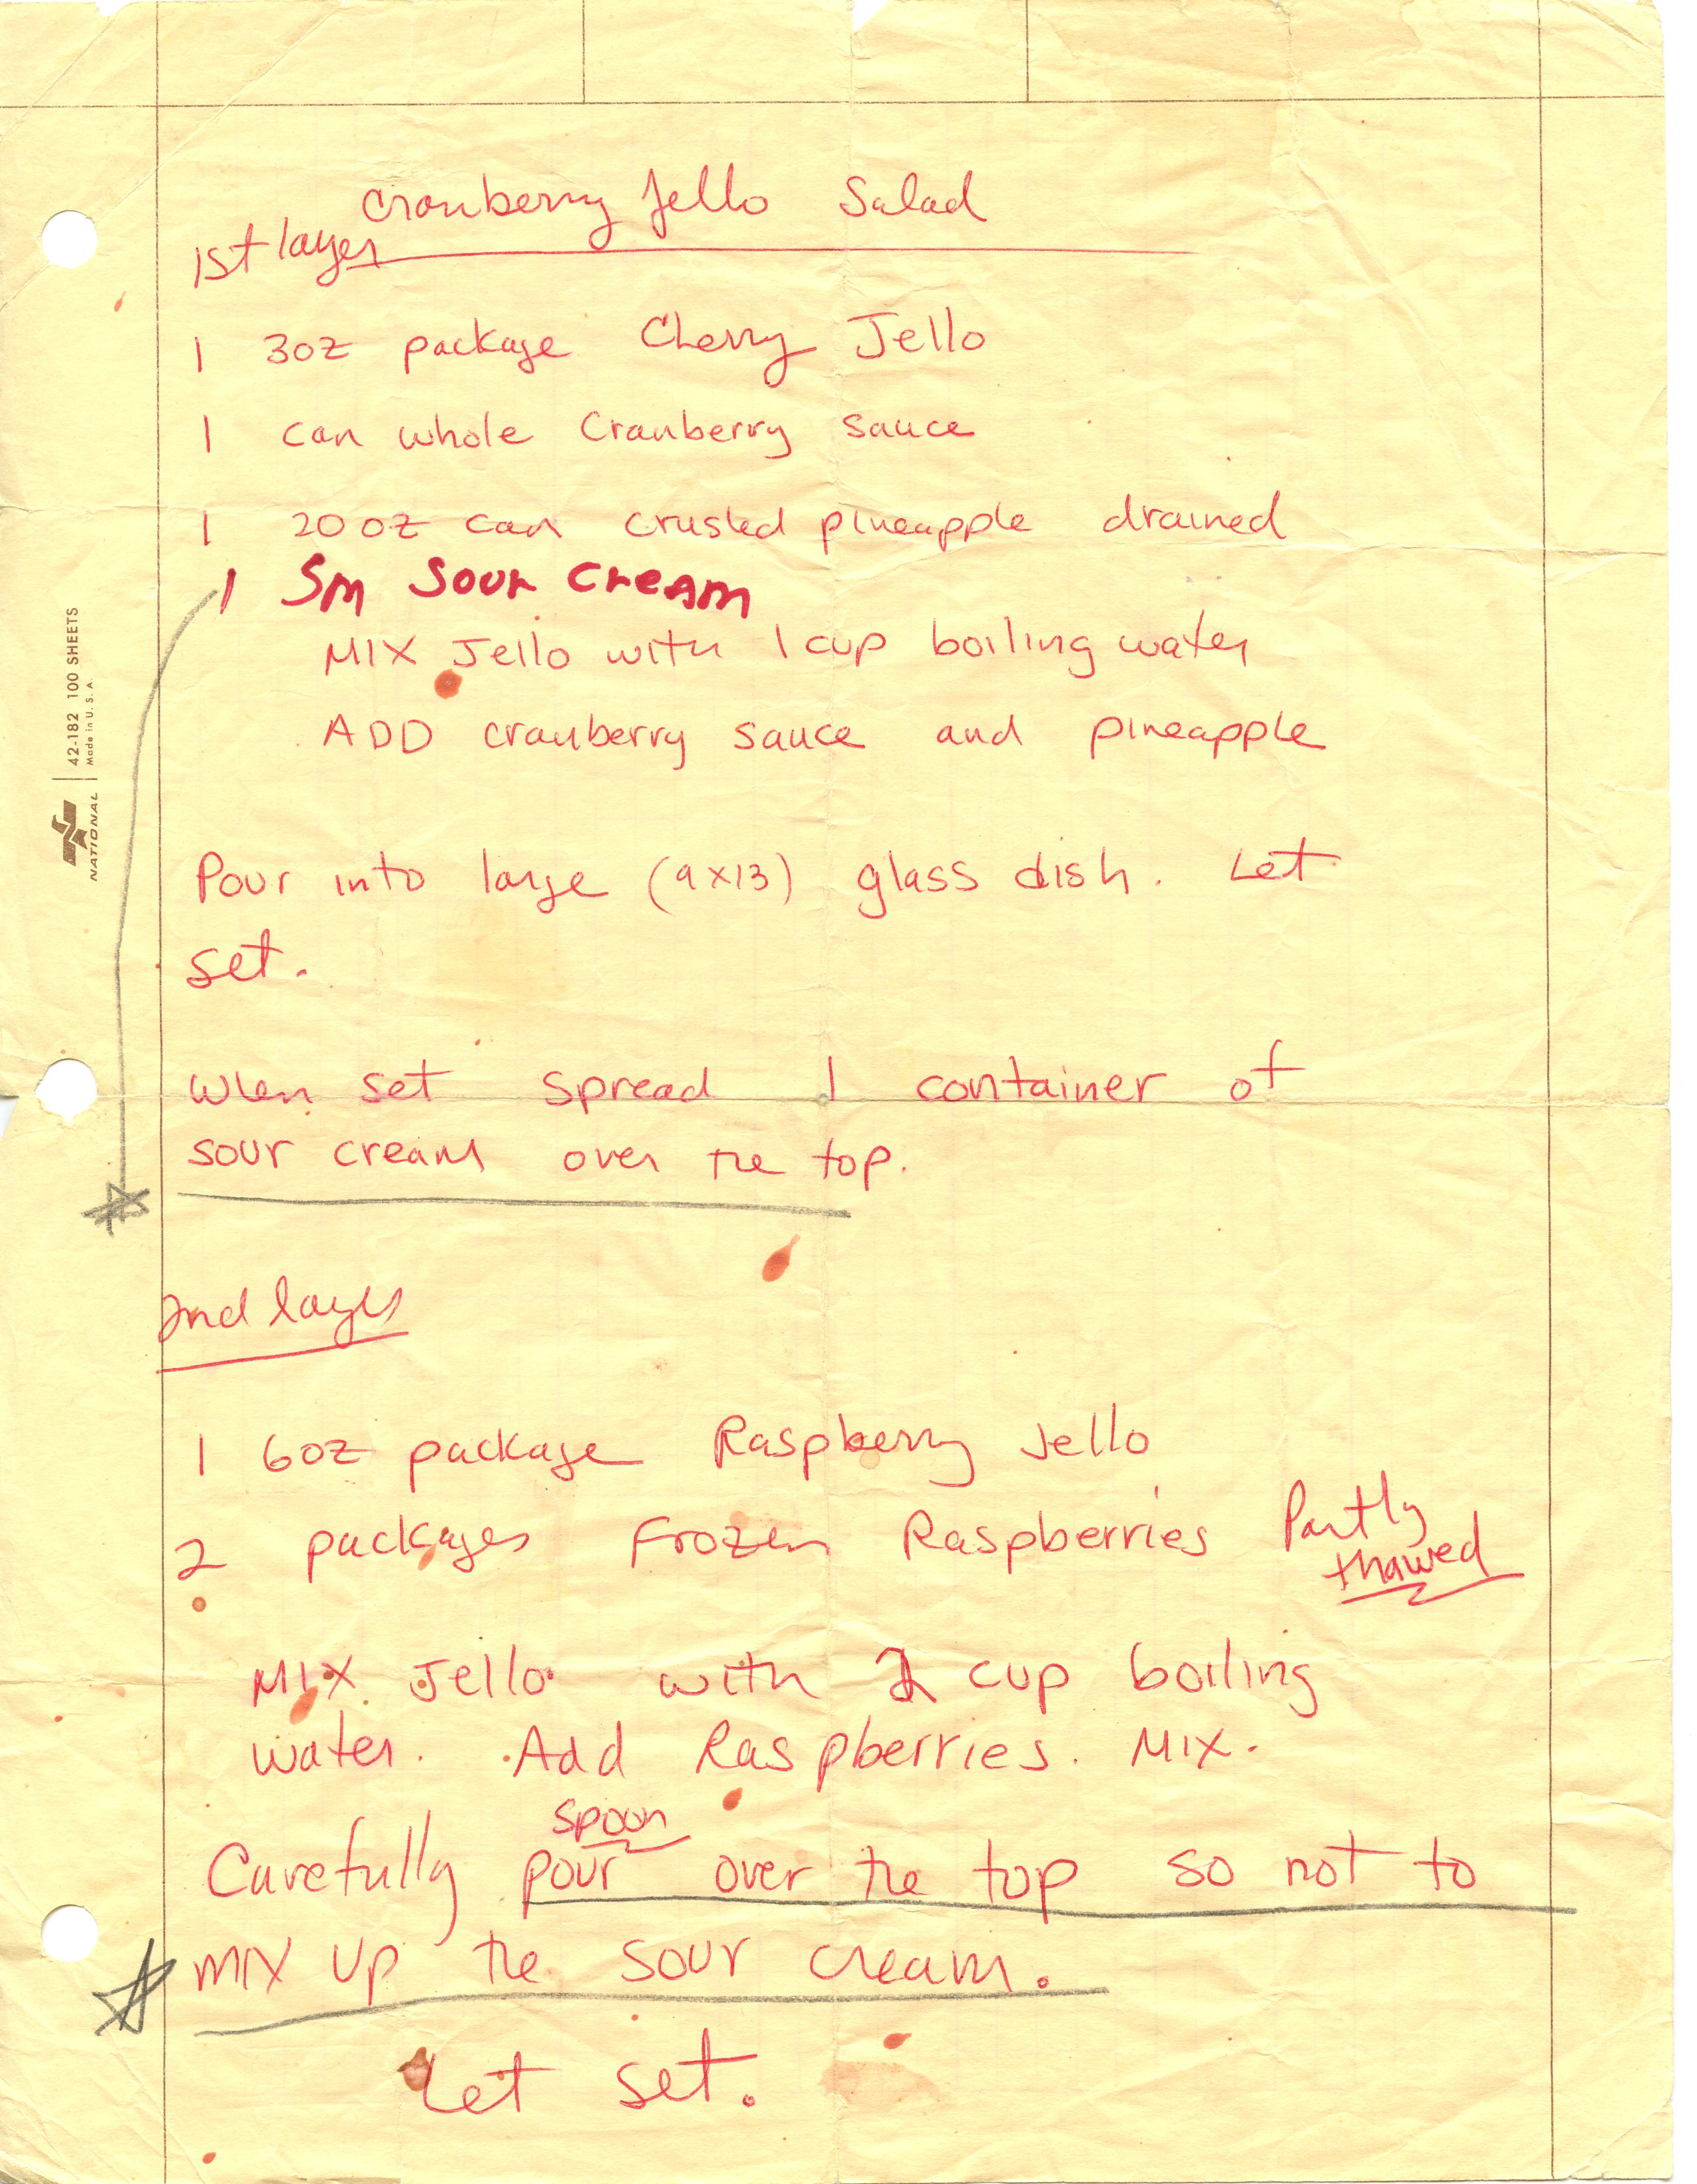 Cranberry Jello Salad
1st layer
1 3oz package Cherry Jello
1 can whole Cranberry sauce
1 20oz can crushed pineapple drained
1 Sm Sour Cream
MIX Jello with 1 cup boiling water
ADD cranberry sauce and pineapple
Pour into large (9x13) glass dish. Let
set.
When set spread 1 container of
sour cream over the top.
2nd layer
1 6oz package Raspberry Jello
2 packages Frozen Raspberries Partly
thawed
MIX Jello with 2 cup boiling
water. Add Raspberries. MIX.
spoon
Carefully pour over the top so not to
MIX Up the sour cream.
Let set.
NATIONAL 42-182 100 SHEETS
Made in U.S.A.